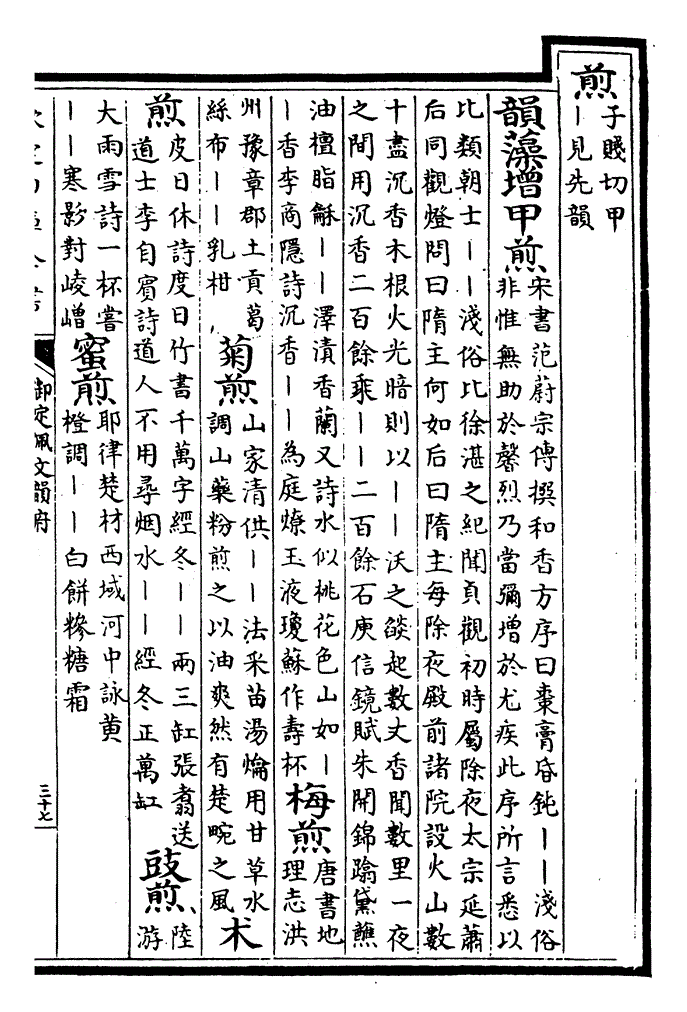 煎
子賤切甲
丨見先韻
韻藻增甲煎
宋書范蔚宗傳撰和香方序曰棗膏昏鈍丨丨淺俗
非惟無助於馨烈乃當彌增於尤疾此序所言悉以
比類朝士丨丨淺俗比徐湛之紀聞貞觀初時屬除夜太宗延蕭
后同觀燈問曰隋主何如后曰隋主每除夜殿前諸院設火山數
十盡沉香木根火光暗則以丨丨沃之燄起數丈香聞數里一夜
之間用沉香二百餘乘丨丨二百餘石庾信鏡賦朱開錦蹹黛蘸
油檀脂龢丨丨澤漬香蘭又詩水似桃花色山如丨
丨香李商隱詩沉香丨丨為庭燎玉液瓊蘇作壽杯
梅煎
唐書地
理志洪
州豫章郡土貢葛
絲布丨丨乳柑
菊煎
山家清供丨丨法采苗湯爚用甘草水
調山藥粉煎之以油爽然有楚畹之風
朮
煎
皮日休詩度日竹書千萬字經冬丨丨兩三缸張翥送
道士李自賓詩道人不用尋烟水丨丨經冬正萬缸
豉煎
陸
游
大雨雪詩一杯嘗
丨丨寒影對崚嶒
蜜煎
耶律楚材西域河中詠黄
橙調丨丨白餅糝糖霜
御定佩文韻府
三十七